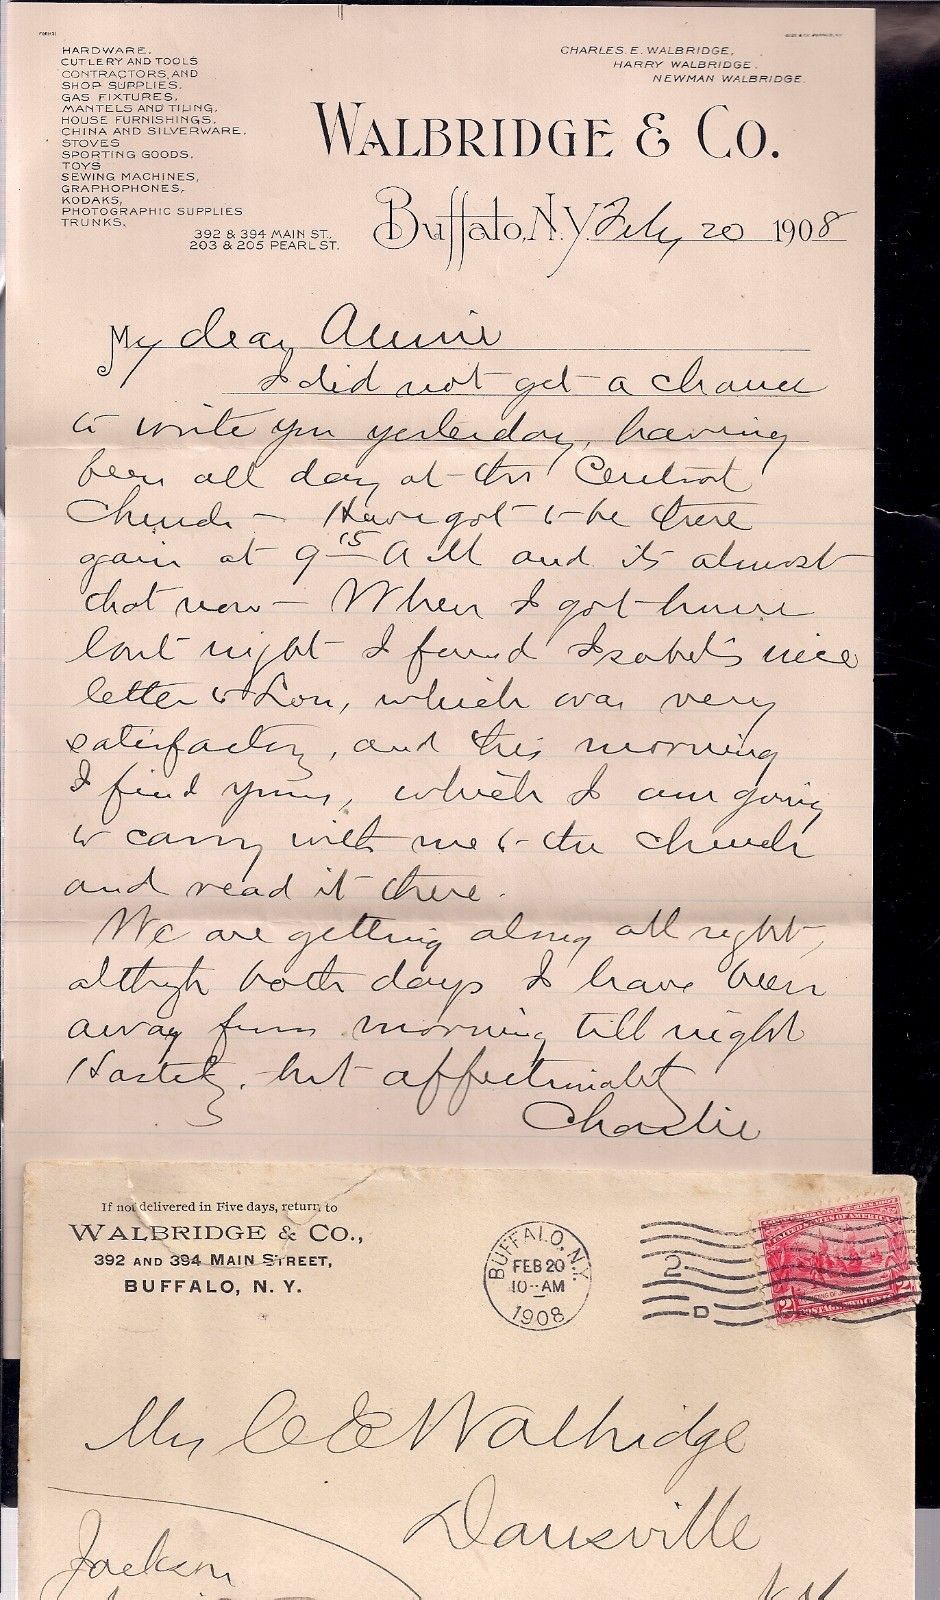 HARDWARE.
CUTLERY AND TOOLS
CONTRACTORS, AND
SHOP SUPPLIES.
GAS FIXTURES,
MANTELS AND TILING.
HOUSE FURNISHINGS.
CHINA AND SILVERWARE.
STOVES
SPORTING GOODS.
TOYS
SEWING MACHINES,
GRAPHOPHONES,
KODAKS,
PHOTOGRAPHIC SUPPLIES
TRUNKS.
392 & 394 MAIN ST.
203 & 205 PEARL ST.
CHARLES. E. WALBRIDGE,
HARRY WALBRIDGE.
NEWMAN WALBRIDGE.
WALBRIDGE & CO.
Buffalo, N.Y. Feby 20 1908
My dear Annie
I did not get a chance
to write you yesterday, having
been all day at the Central
Church – Have got to be there
again at 9 15 A M and its almost
that now – When I got home
last night I found Isabel's nice
letter to Lou, which was very
satisfactory, and this morning
I find yours, which I am going
to carry with me to the church
and read it there.
We are getting along all right,
although both days I have been
away from morning till night
Hastily, but affectionately
Charlie
If not delivered in Five days, return to
WALBRIDGE & CO.,
392 AND 394 MAIN STREET,
BUFFALO, N. Y.
BUFFALO, N.Y.
FEB 20
10-AM
1908
2
D
UNITED STATES OF AMERICA
2 2
POSTAGE TWO CENTS
Mrs C E Walbridge
Dansville
N Y
Jackson